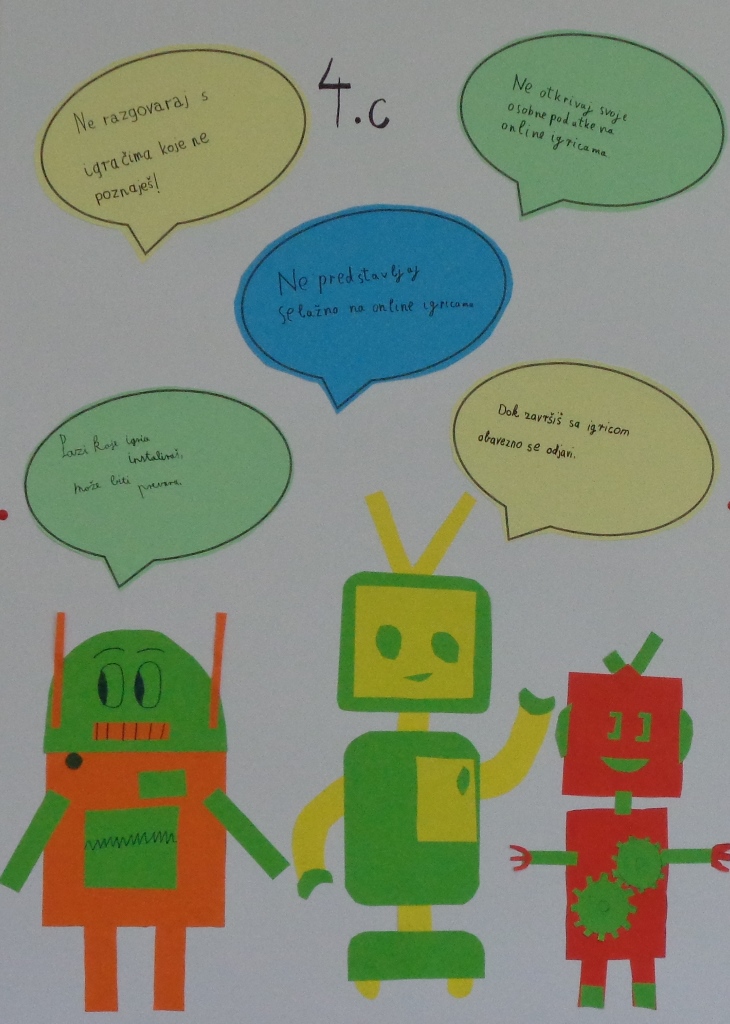 4.c
Ne razgovaraj s
igračima koje ne
poznaješ!
Ne otkrivaj svoje
osobne podatke na
online igricama
Ne predstavljaj
se lažno na online igricama
Pazi koje igrice
instaliraš,
može biti prevara.
Dok završiš sa igricom
obavezno se odjavi.